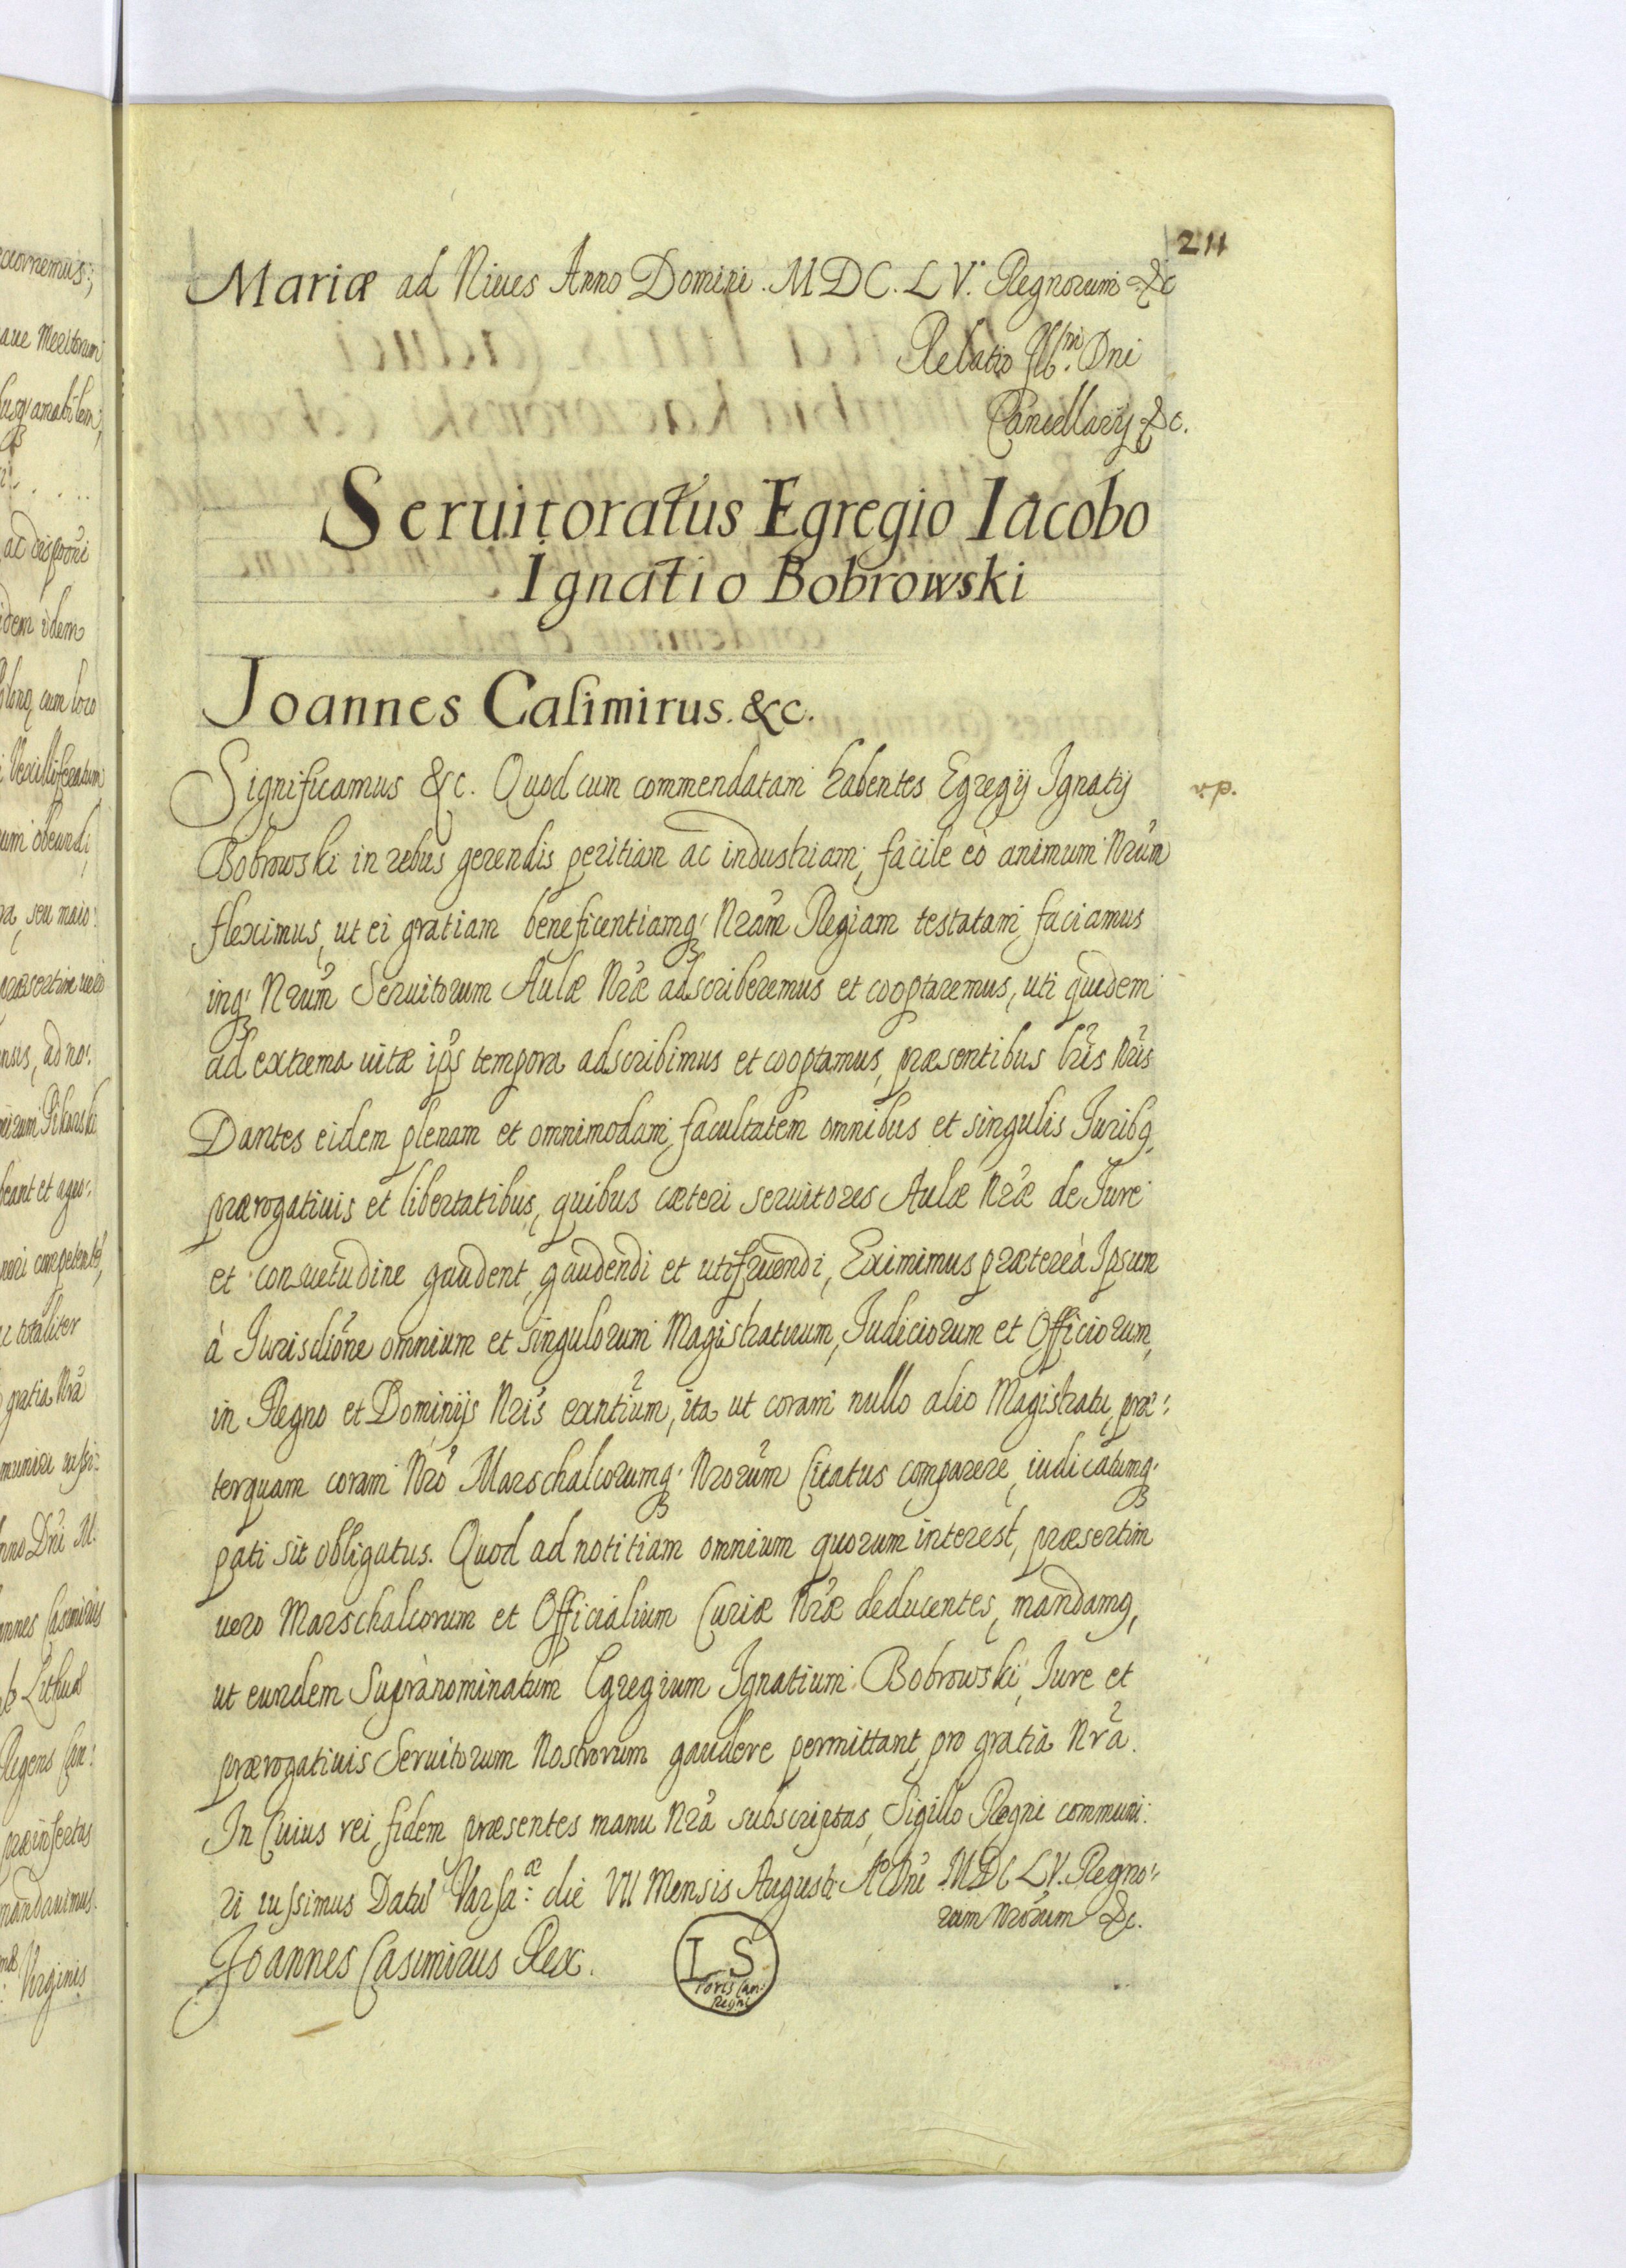 211
Mariæ ad Niues Anno Domini. MDC.LV. Regnorum &c
Relatio Ill.mi Dni
Cancellarij &c.
Seruitoratus Egregio Iacobo
Ignatio Bobrowski
Joannes Casimirus. &c.
Significamus &c. Quod cum commendatam habentes Egregij Ignatij
Bobrowski in rebus gerendis peritiam ac industriam, facile eò animum Nrum
fleximus, ut ei gratiam beneficentiamq; Nram Regiam testatam faciamus
inq; Nrum Seruitorum Aulæ Nræ adscriberemus et cooptaremus, uti quidem
ad extrema uitæ ips tempora adscribimus et cooptamus, præsentibus lris Nris
Dantes eidem plenam et omnimodam facultatem omnibus et singulis Juribq,
prærogatiuis et libertatibus, quibus cæteri seruitores Aulæ Nræ de Jure
et consuetudine gaudent, gaudendi et utifruendi, Eximimus prætereà Ipsum
à Jurisdione omnium et singulorum Magistratuum, Judiciorum et Officiorum,
in Regno et Dominijs Nris exntium, ita ut coram nullo alio Magistratu, præ:
terquam coram Nro Marschalcorumq; Nrorum Citatus comparere, iudicatumq;
pati sit obligatus. Quod ad notitiam omnium quorum interest, præsertim
uero Marschalcorum et Officialium Curiæ Nræ deducentes, mandamq,
ut eundem Supranominatum Egregium Ignatium Bobrowski, Jure et
prærogatiuis Seruitorum Nostrorum gaudere permittant, pro gratia Nra.
In Cuius rei fidem præsentes manu Nra subscriptas, Sigillo Regni communi:
ri iussimus Datũ Varsa:æ die VII Mensis Augusti Ao Dni MDC LV. Regno:
rum Nrorum &c.
Joannes Casimirus Rex.
LS
Regni